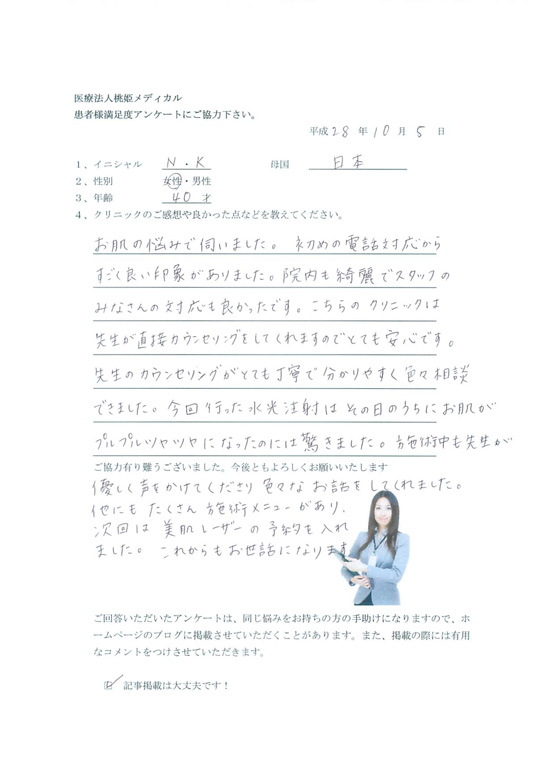 医療法人桃姫メディカル
患者様満足度アンケートにご協力下さい。
平成28年10月5日
1、イニシャル N・K 母国 日本
2、性別 女性・男性
3、年齢 40才
4、クリニックのご感想や良かった点などを教えてください。
お肌の悩みで伺いました。初めの電話対応から
すごく良い印象がありました。院内も綺麗でスタッフの
みなさんの対応も良かったです。こちらのクリニックは
先生が直接カウンセリングをしてくれますのでとても安心です。
先生のカウンセリングがとても丁寧で分かりやすく色々相談
できました。今回行った水光注射はその日のうちにお肌が
プルプルツヤツヤになったのには驚きました。施術中も先生が
ご協力有り難うございました。今後ともよろしくお願いいたします
優しく声をかけてくださり色々なお話をしてくれました。
他にもたくさん施術メニューがあり、
次回は美肌レーザーの予約を入れ
ました。これからもお世話になります
ご回答いただいたアンケートは、同じ悩みをお持ちの方の手助けになりますので、ホ
ームページのブログに掲載させていただくことがあります。また、掲載の際には有用
なコメントをつけさせていただきます。
記事掲載は大丈夫です！